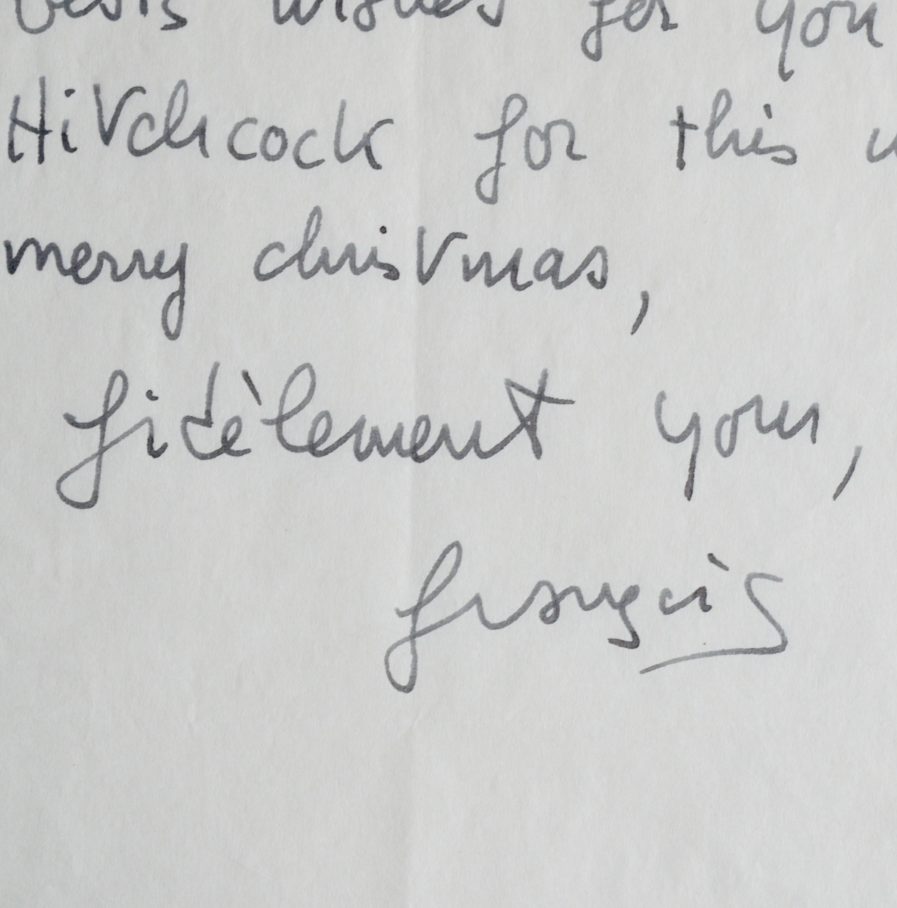 bests wishes for you
Hitchcock for this
merry christmas,
fidèlement your,
françois